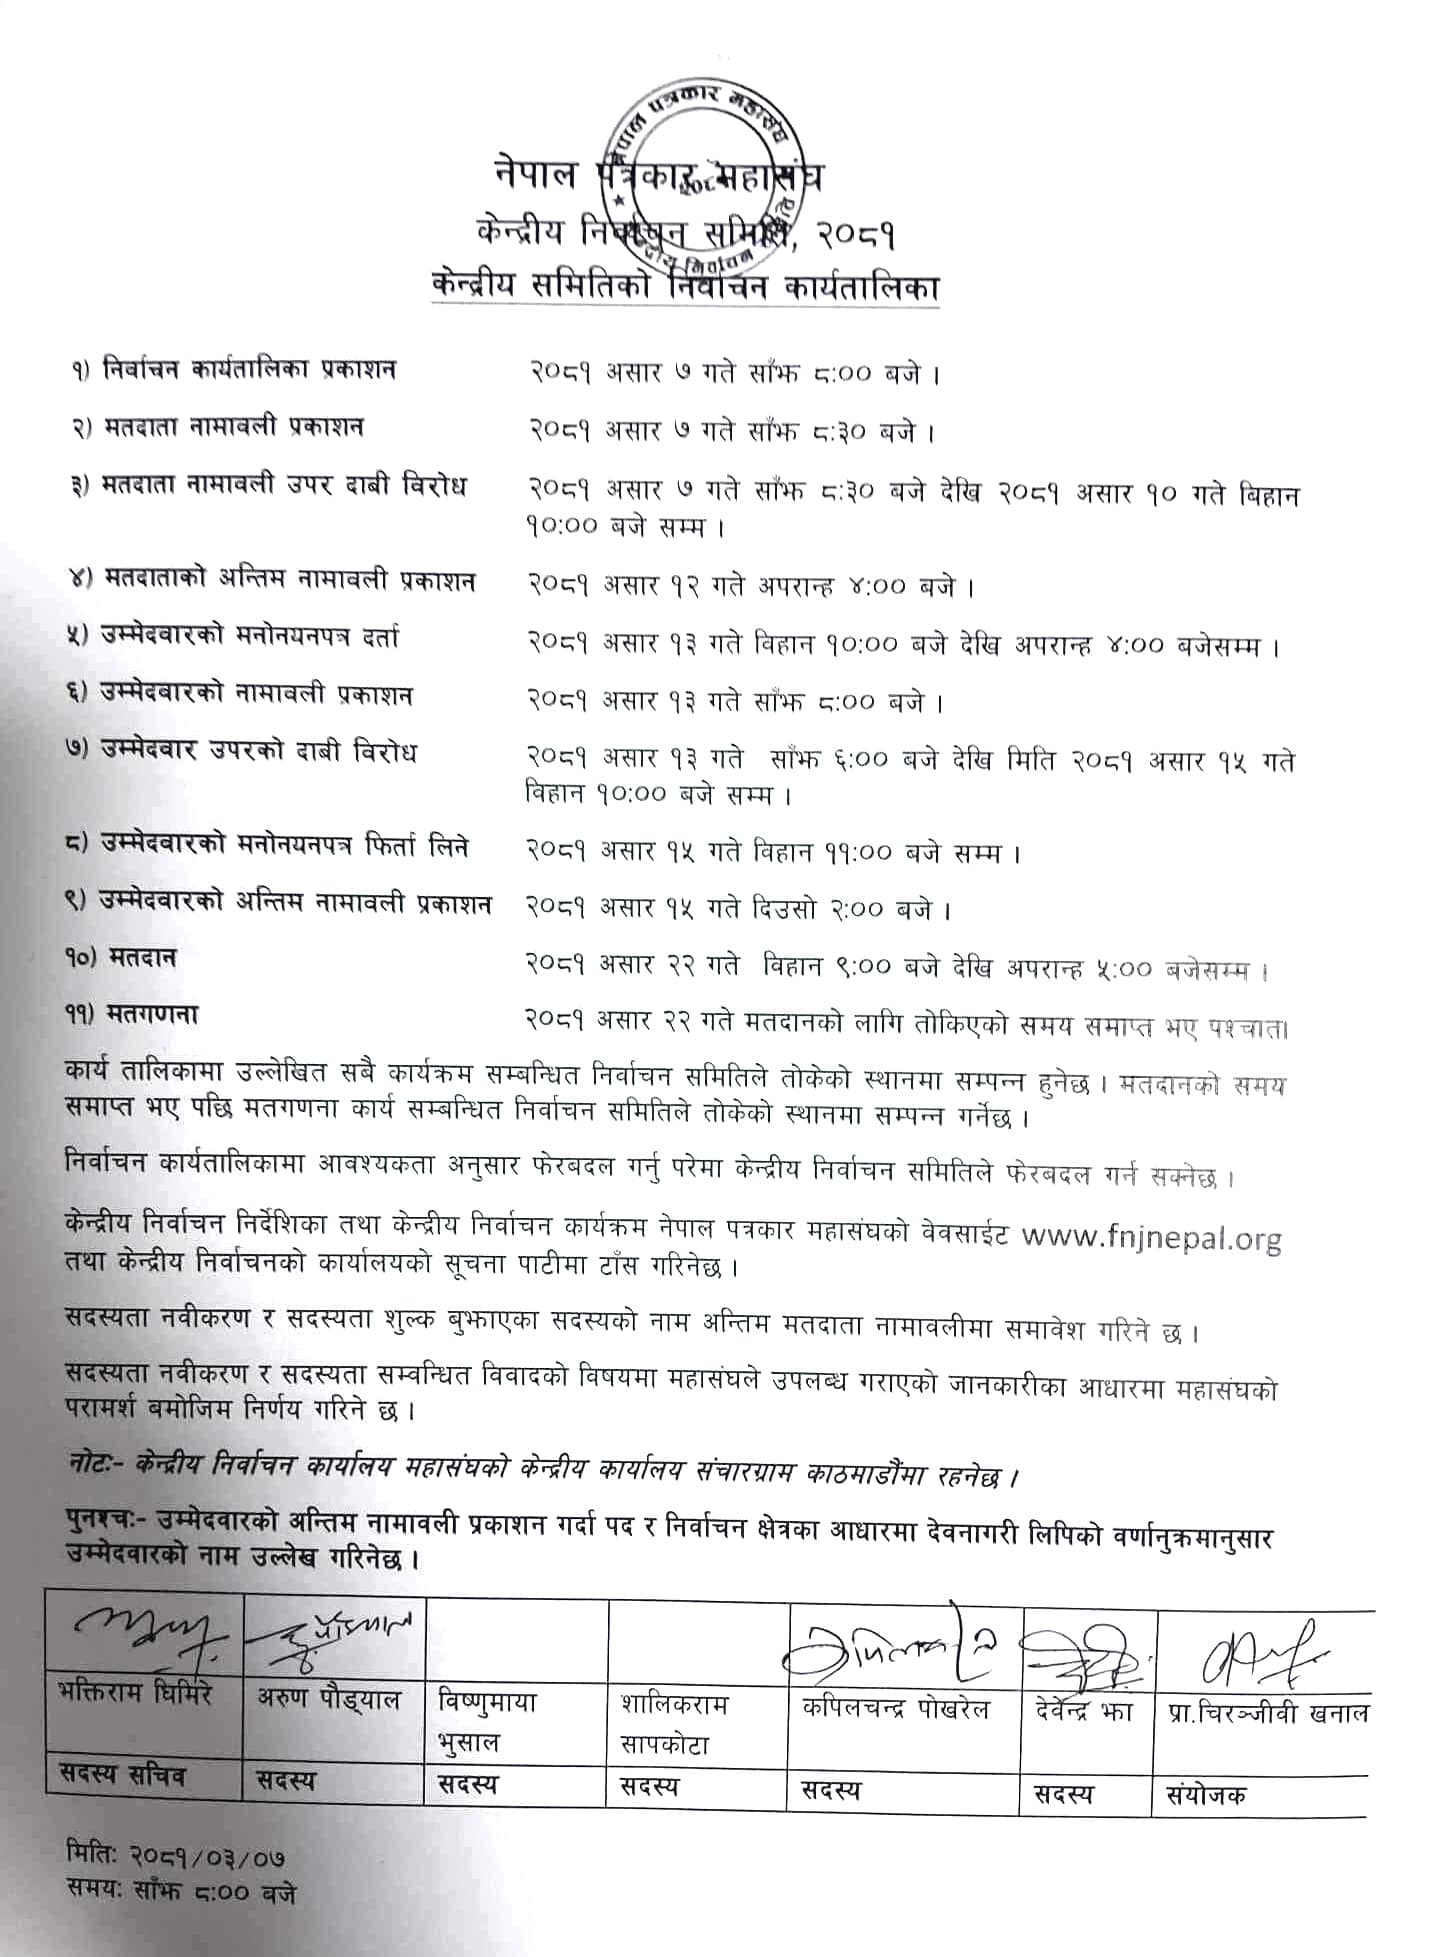 नेपाल पत्रकार महासंघ
नेपाल पत्रकार महासंघ
केन्द्रीय निर्वाचन समिति, २०८१
केन्द्रीय समितिको निर्वाचन कार्यतालिका
१) निर्वाचन कार्यतालिका प्रकाशन २०८१ असार ७ गते साँझ ८:०० बजे ।
२) मतदाता नामावली प्रकाशन २०८१ असार ७ गते साँझ ८:३० बजे ।
३) मतदाता नामावली उपर दाबी विरोध २०८१ असार ७ गते साँझ ८:३० बजे देखि २०८१ असार १० गते बिहान
१०:०० बजे सम्म ।
४) मतदाताको अन्तिम नामावली प्रकाशन २०८१ असार १२ गते अपरान्ह ४:०० बजे ।
५) उम्मेदवारको मनोनयनपत्र दर्ता २०८१ असार १३ गते विहान १०:०० बजे देखि अपरान्ह ४:०० बजेसम्म ।
६) उम्मेदवारको नामावली प्रकाशन २०८१ असार १३ गते साँझ ८:०० बजे ।
७) उम्मेदवार उपरको दाबी विरोध २०८१ असार १३ गते साँझ ६:०० बजे देखि मिति २०८१ असार १५ गते
विहान १०:०० बजे सम्म ।
८) उम्मेदवारको मनोनयनपत्र फिर्ता लिने २०८१ असार १५ गते विहान ११:०० बजे सम्म ।
९) उम्मेदवारको अन्तिम नामावली प्रकाशन २०८१ असार १५ गते दिउसो २:०० बजे ।
१०) मतदान २०८१ असार २२ गते विहान ९:०० बजे देखि अपरान्ह ५:०० बजेसम्म ।
११) मतगणना २०८१ असार २२ गते मतदानको लागि तोकिएको समय समाप्त भए पश्चात।
कार्य तालिकामा उल्लेखित सबै कार्यक्रम सम्बन्धित निर्वाचन समितिले तोकेको स्थानमा सम्पन्न हुनेछ । मतदानको समय
समाप्त भए पछि मतगणना कार्य सम्बन्धित निर्वाचन समितिले तोकेको स्थानमा सम्पन्न गर्नेछ ।
निर्वाचन कार्यतालिकामा आवश्यकता अनुसार फेरबदल गर्नु परेमा केन्द्रीय निर्वाचन समितिले फेरबदल गर्न सक्नेछ ।
केन्द्रीय निर्वाचन निर्देशिका तथा केन्द्रीय निर्वाचन कार्यक्रम नेपाल पत्रकार महासंघको वेवसाईट www.fnjnepal.org
तथा केन्द्रीय निर्वाचनको कार्यालयको सूचना पाटीमा टाँस गरिनेछ ।
सदस्यता नवीकरण र सदस्यता शुल्क बुझाएका सदस्यको नाम अन्तिम मतदाता नामावलीमा समावेश गरिने छ ।
सदस्यता नवीकरण र सदस्यता सम्वन्धित विवादको विषयमा महासंघले उपलब्ध गराएको जानकारीका आधारमा महासंघको
परामर्श बमोजिम निर्णय गरिने छ ।
नोटः- केन्द्रीय निर्वाचन कार्यालय महासंघको केन्द्रीय कार्यालय संचारग्राम काठमाडौंमा रहनेछ ।
पुनश्चः- उम्मेदवारको अन्तिम नामावली प्रकाशन गर्दा पद र निर्वाचन क्षेत्रका आधारमा देवनागरी लिपिको वर्णानुक्रमानुसार
उम्मेदवारको नाम उल्लेख गरिनेछ ।
भक्तिराम घिमिरे अरुण पौड्याल विष्णुमाया शालिकराम कपिलचन्द्र पोखरेल देवेन्द्र झा प्रा.चिरञ्जीवी खनाल
भुसाल सापकोटा
सदस्य सचिव सदस्य सदस्य सदस्य सदस्य सदस्य संयोजक
मितिः २०८१/०३/०७
समयः साँझ ८:०० बजे